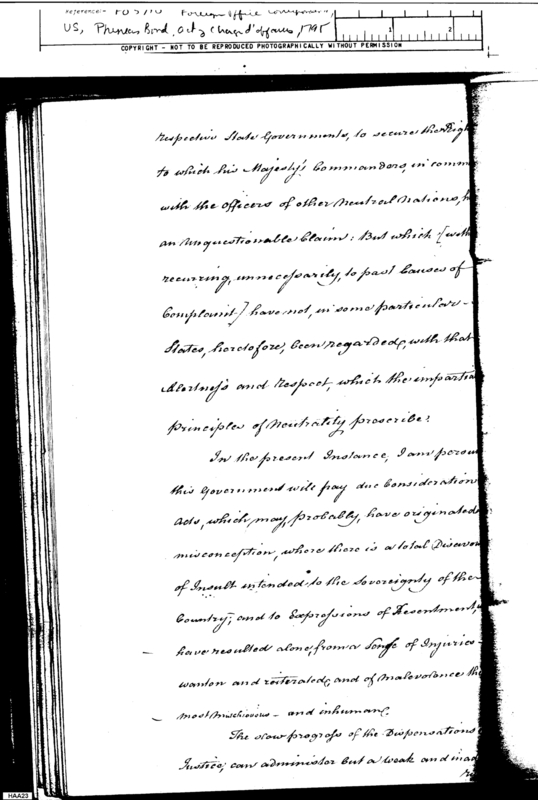 US, Phineas Bond, Act'g Chargé d'affaires, 1795
1 2
COPYRIGHT - NOT TO BE REPRODUCED PHOTOGRAPHICALLY WITHOUT PERMISSION
respective State Governments, to secure the Righ
to which his Majesty's Commanders, in comm
with the Officers of other Neutral Nations, h
an Unquestionable Claim: But which [with
recurring, unnecessarily, to past Causes of
Complaint] have not, in some particular
States, heretofore, been regarded, with that
Alertness and Respect, which the impartia
Principles of Neutrality prescribe.
In the present Instance, I am persua
this Government will pay due Consideration
Acts, which may, probably, have originated
misconception, where there is a total Disavow
of Insult intended to the Sovereignty of the
Country; and to Expressions of Resentment,
have resulted alone, from a Sense of Injuries
wanton and reiterated, and of malevolence th
most mischievous and inhuman.
The slow progress of the Dispensations
Justice, can administer but a weak and inad
HAA23